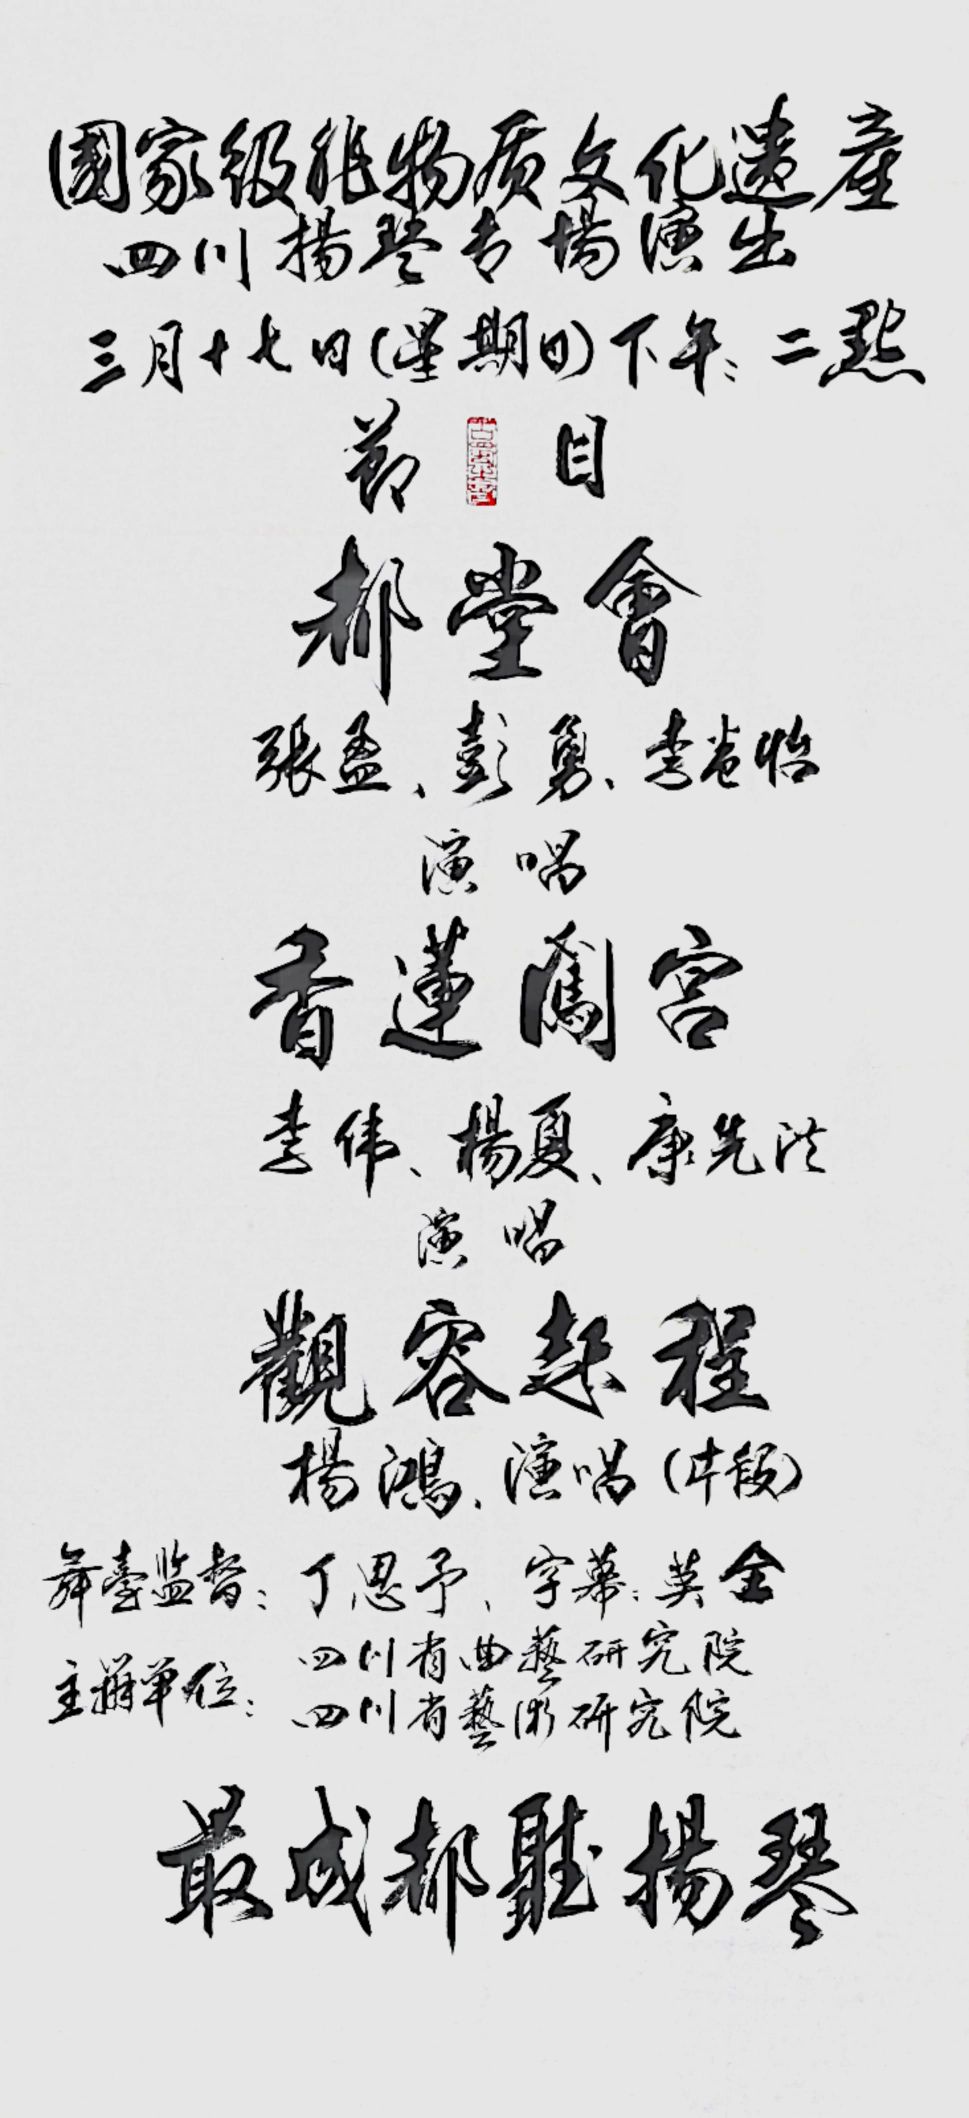 國家级非物质文化遗產
四川揚琴专場演出
三月十七日(星期日)下午:二點
節 目
都堂會
張孟、彭勇、李卷怡
演唱
香蓮闖宫
李伟、楊夏、康先洪
演唱
觀容起程
楊鴻、演唱(中段)
舞臺监督:丁思予、字幕:莫全
主辦单位:四川省曲藝研究院
四川省藝術研究院
最成都聽揚琴